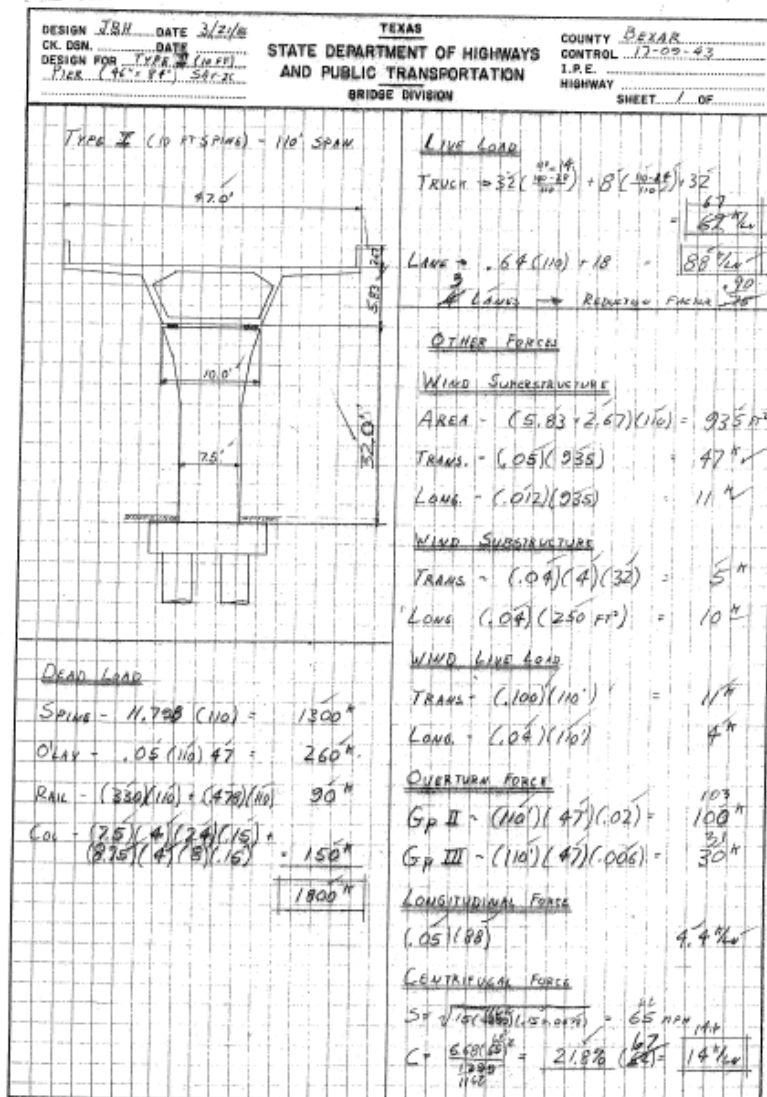 DESIGN JBH DATE 3/21/
CK. DSN. DATE
DESIGN FOR TYPE II (10 FT)
PIER (46" x 84")
TEXAS
STATE DEPARTMENT OF HIGHWAYS
AND PUBLIC TRANSPORTATION
BRIDGE DIVISION
COUNTY BEXAR
CONTROL 17-09-43
I.P.E.
HIGHWAY
SHEET 1 OF
(10 FT SPINE) - 110' SPAN
47.0'
5.83
10.0'
7.5'
32.0'
DEAD LOAD
SPINE - 11.798 (110) = 1300 K
O'LAY - .05 (110) 47 = 260 K
RAIL - (330)(110) + (478)(110) 90 K
COL - (7.5)(4)(24)(.15) +
(8.75)(4)(8)(.15) = 150 K
1800 K
LIVE LOAD
TRUCK → 32 ( ) + 8 ( ) + 32
67
= 62 K/LN
LANE → .64 (110) + 18 88 K/LN
3 LANES → REDUCTION FACTOR .90
OTHER FORCES
WIND SUPERSTRUCTURE
AREA - (5.83 + 2.67)(110) = 935 FT²
TRANS. - (.05)(935) = 47 K
LONG. - (.012)(935) = 11 K
WIND SUBSTRUCTURE
TRANS - (.04)(4)(32) = 5 K
LONG (.04)(250 FT²) = 10 K
WIND LIVE LOAD
TRANS - (.100)(110') = 11 K
LONG. - (.04)(110') 4 K
OVERTURN FORCE
103
Gp II - (110')(47)(.02) = 100 K
31
Gp III - (110')(47)(.006) = 30 K
LONGITUDINAL FORCE
(.05)(88) 4.4 K/LN
CENTRIFUGAL FORCE
S = = 65 MPH
C = = 21.8% (67) = 14 K/LN
1162